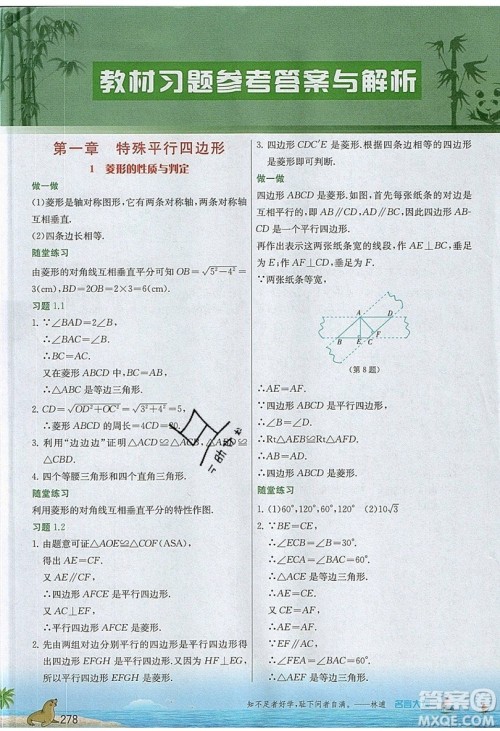 教材习题参考答案与解析
第一章 特殊平行四边形
1 菱形的性质与判定
做一做
(1)菱形是轴对称图形,它有两条对称轴,两条对称轴
互相垂直.
(2)四条边长相等.
随堂练习
由菱形的对角线互相垂直平分可知OB=√5²-4²=
3(cm),BD=2OB=2×3=6(cm).
习题 1.1
1. ∵∠BAD=2∠B,
∴∠B=60°.
∴BC=AC.
又在菱形ABCD中,AB=BC,
∴△ABC是等边三角形.
2. CD=√OD²+OC²=√3²+4²=5,
∴菱形ABCD的周长=4CD=20.
3. 利用“边边边”证明△ACD≌△ACB,△ABD≌△
CBD.
4. 四个等腰三角形和四个直角三角形.
随堂练习
利用菱形的对角线互相垂直平分的特性作图.
习题 1.2
1. 由题意可证△AOE≌△COF(ASA),
得出AE=CF,
又AE∥CF,
∴四边形AFCE是平行四边形.
又AC⊥EF,
∴平行四边形AFCE是菱形.
2. 先由两组对边分别平行的四边形是平行四边形得出
四边形EFGH是平行四边形,再由EH=EF可证得
平行四边形EFGH是菱形.
278
3. 四边形CDC′E是菱形.根据四条边相等的四边形
是菱形即可判断.
做一做
四边形ABCD是菱形.如图,首先每张纸条的对边是
互相平行的,即AB∥CD,AD∥BC,因此四边形AB-
CD是一个平行四边形.
再作出表示这两张纸条宽的线段,作AE⊥BC,垂足
为E;作AF⊥CD,垂足为F.
∵两张纸条等宽,
A
D
F
B
E
C
(第8题)
∴AE=AF.
∵四边形ABCD是平行四边形,
∴∠B=∠D.
∴Rt△AEB≌Rt△AFD.
∴AB=AD.
∴四边形ABCD是菱形.
随堂练习
1. (1)60°,120°,60°,120° (2)10√3
2. ∵BE=CE,
∴∠ECB=∠B=30°.
∴∠AEC=∠ECB+∠B=60°.
∵∠A=∠B+30°=60°,
∴△AEC是等边三角形.
∴AE=CE.
∴AE=BE.
知不足者好学,耻下问者自满。——林逋
名言大
答案圈
MXQE.COM